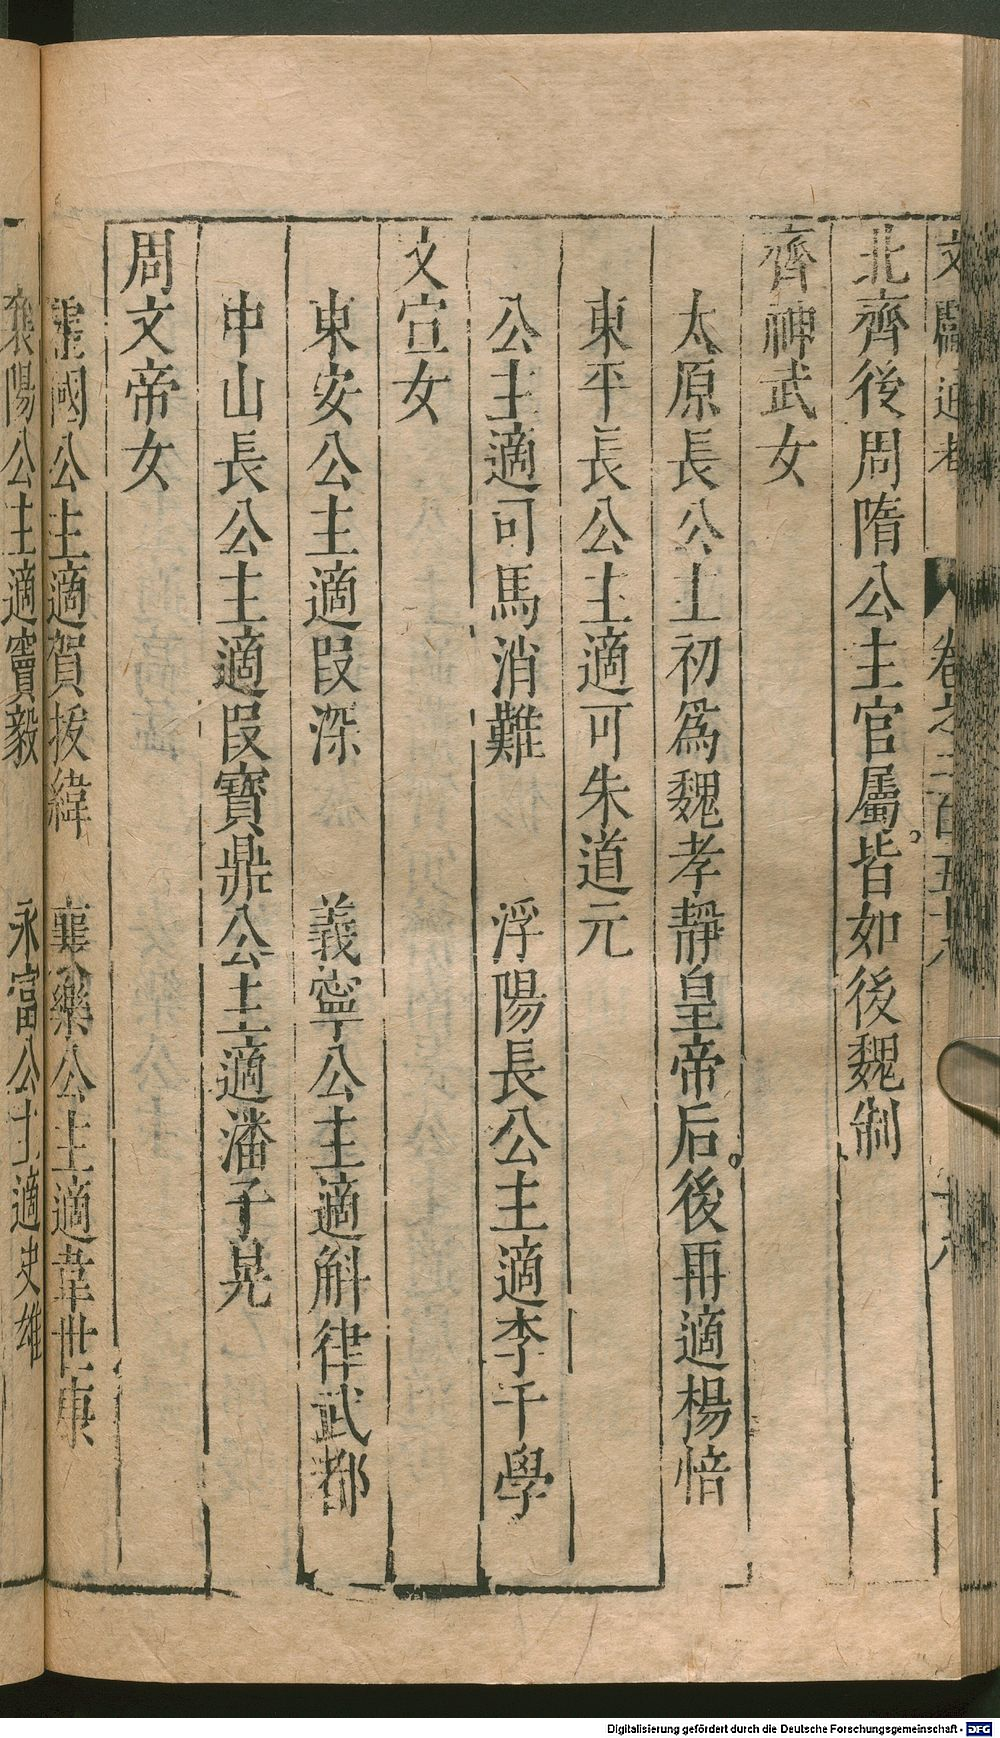 文獻通考 卷之二百五十八 十八
北齊後周隋公主官屬皆如後魏制
齊神武女
太原長公主初爲魏孝靜皇帝后後再適楊愔
東平長公主適可朱道元
公主適司馬消難 浮陽長公主適李千學
文宣女
東安公主適段深 義寧公主適斛律武都
中山長公主適段寶鼎公主適潘子晃
周文帝女
國公主適賀拔緯 襄樂公主適韋世康
襄陽公主適竇毅 永富公主適史雄
Digitalisierung gefördert durch die Deutsche Forschungsgemeinschaft - DFG